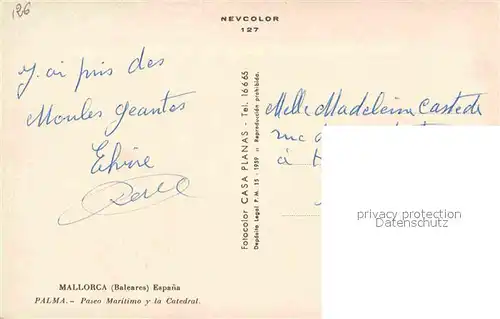 126
NEVCOLOR
127
J'ai pris des
Moules geantes
Melle Madeleine Casteds
rue
à
Fotocolor CASA PLANAS - Tel. 16665
Depósito Legal P.M. 15 - 1959 :: Reproducción prohibida.
privacy protection
Datenschutz
MALLORCA (Baleares) España
PALMA. - Paseo Marítimo y la Catedral.